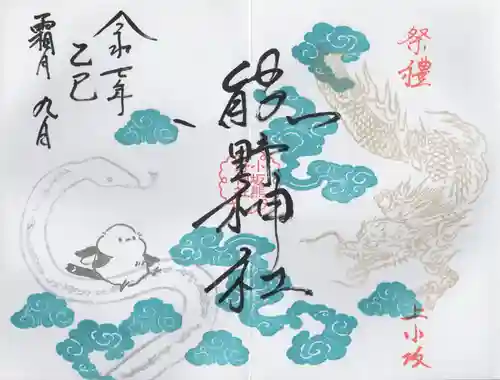 祭禮
上小坂
熊野神社
令和七年
乙巳
霜月 九日